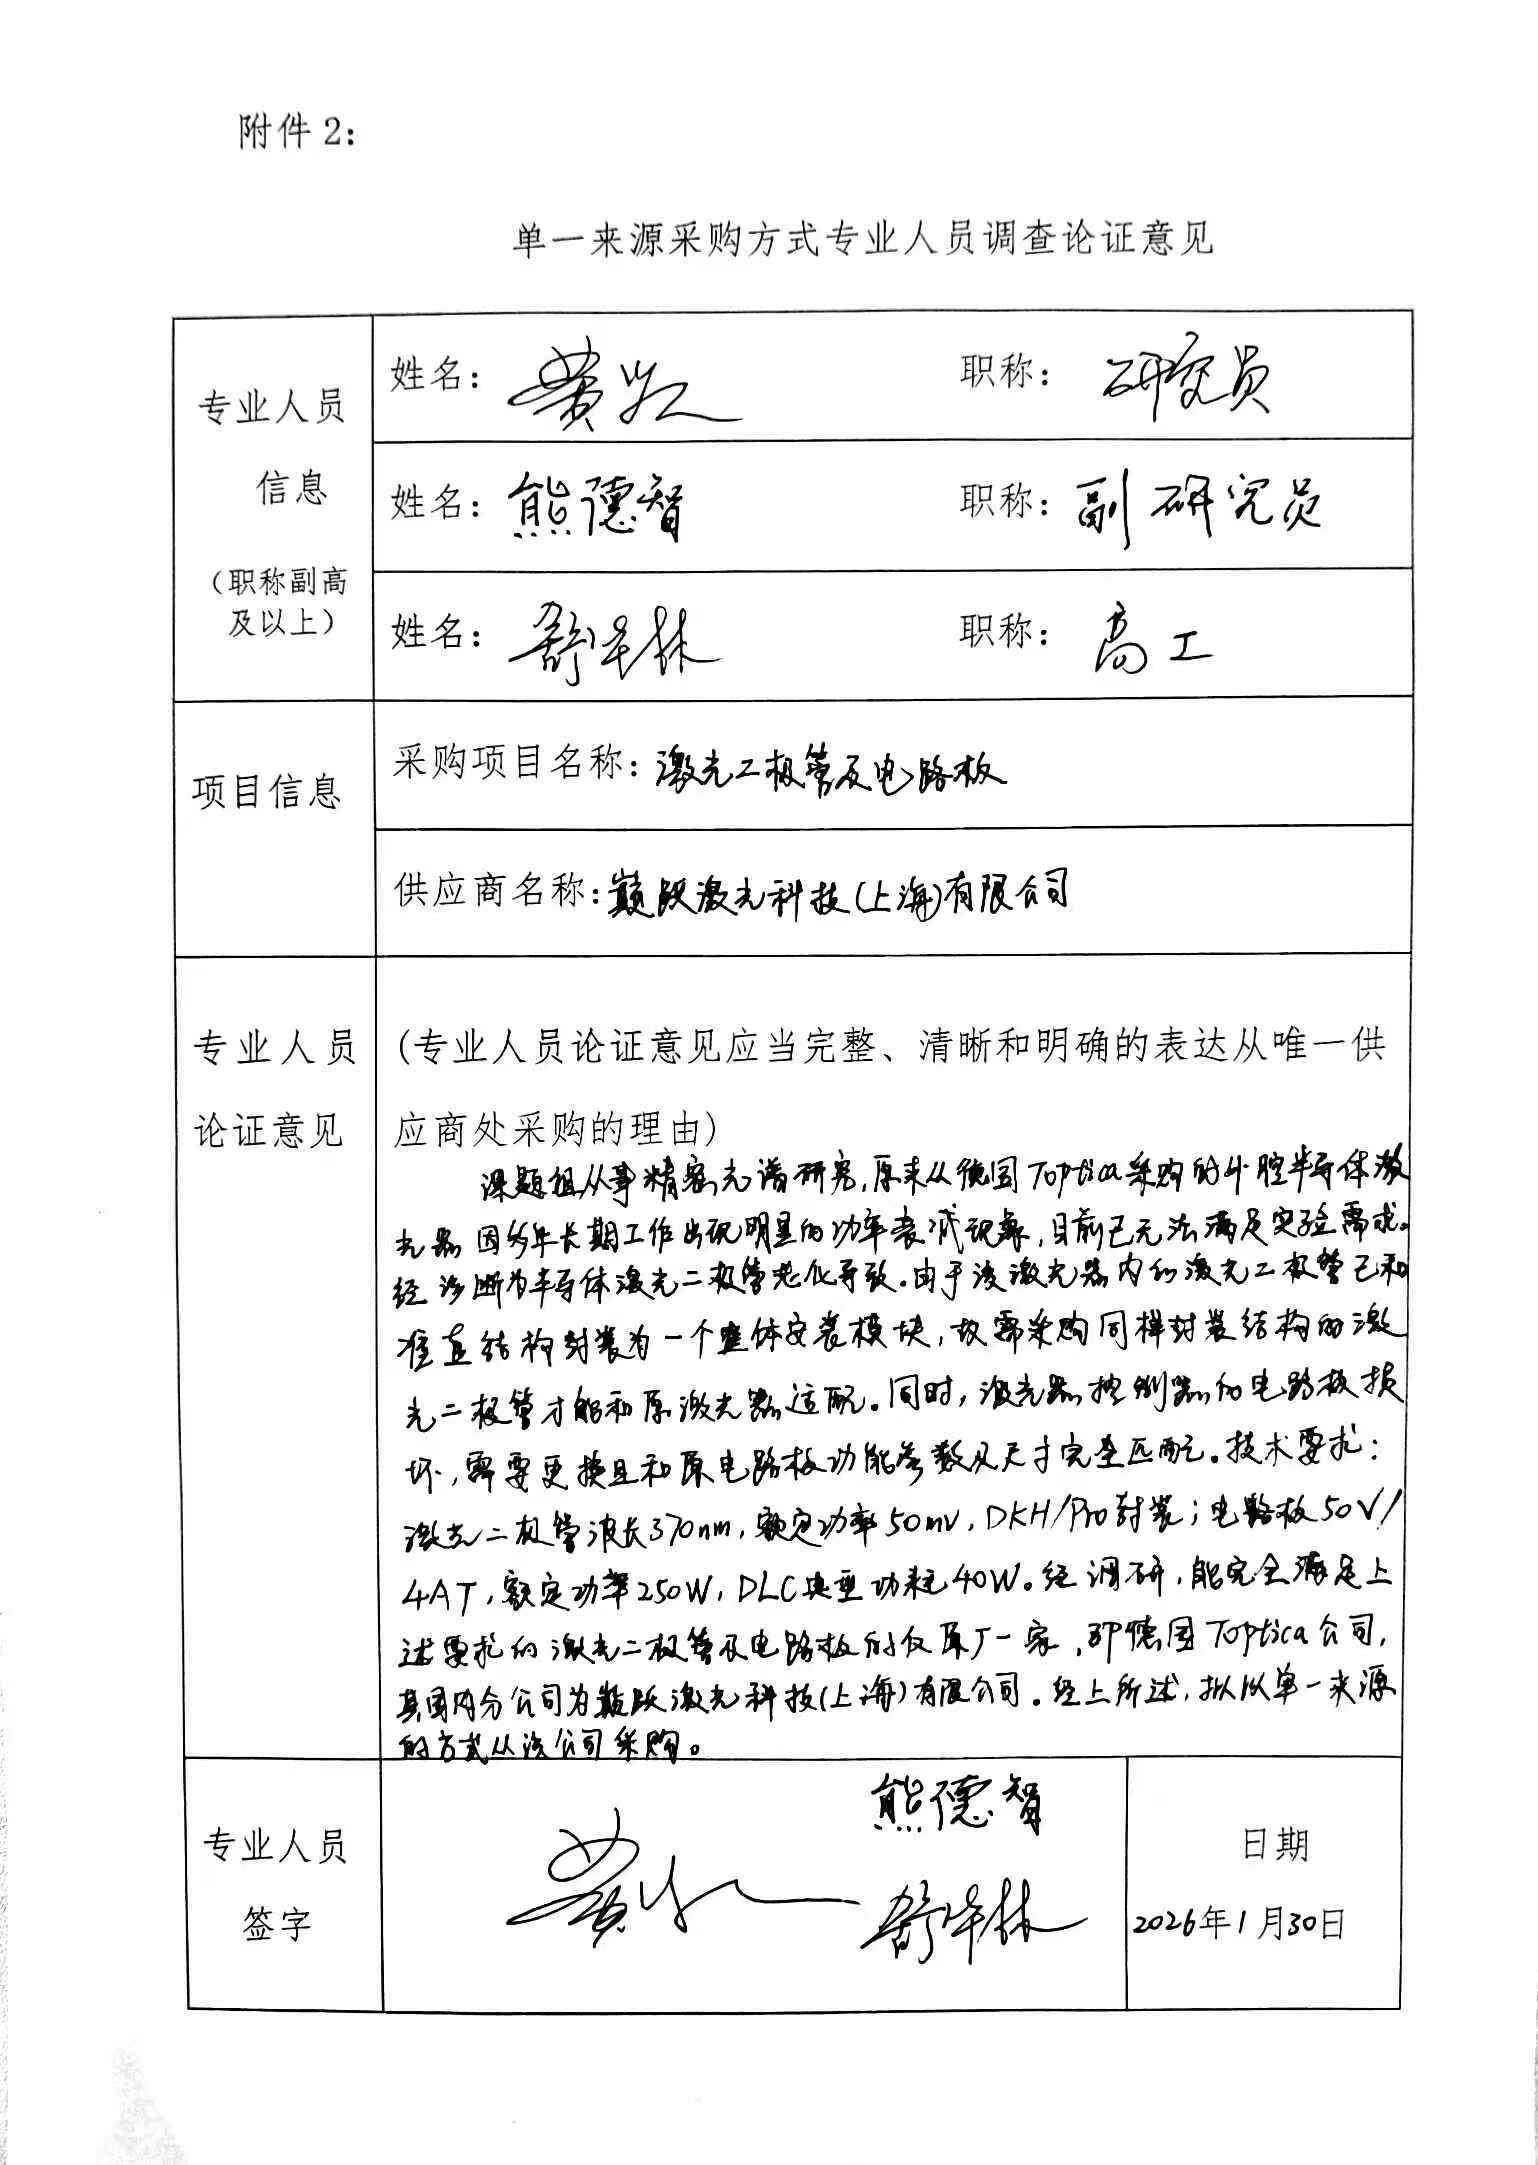 附件2：
单一来源采购方式专业人员调查论证意见
专业人员
信息
（职称副高
及以上）
姓名： 黄 职称： 研究员
姓名： 熊德智 职称： 副研究员
姓名： 舒华林 职称： 高工
项目信息
采购项目名称：激光二极管及电路板
供应商名称：巅跃激光科技(上海)有限公司
专业人员
论证意见
(专业人员论证意见应当完整、清晰和明确的表达从唯一供
应商处采购的理由)
课题组从事精密光谱研究，原来从德国Toptica采购的外腔半导体激
光器因多年长期工作出现明显的功率衰减现象，目前已无法满足实验需求。
经诊断为半导体激光二极管老化导致。由于该激光器内的激光二极管已和
准直结构封装为一个整体安装模块，故需采购同样封装结构的激
光二极管才能和原激光器适配。同时，激光器控制器的电路板损
坏，需要更换且和原电路板功能参数及尺寸完全匹配。技术要求：
激光二极管波长370nm，额定功率50mW，DKH/Pro封装；电路板50V/
4AT，额定功率250W，DLC典型功耗40W。经调研，能完全满足上
述要求的激光二极管及电路板的仅原厂一家，即德国Toptica公司，
其国内分公司为巅跃激光科技(上海)有限公司。经上所述，拟以单一来源
的方式从该公司采购。
专业人员
签字
熊德智
黄
舒华林
日期
2026年1月30日